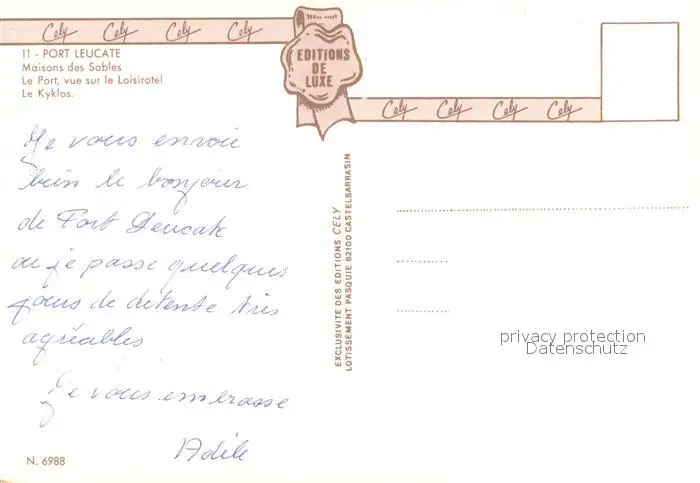 Cely Cely Cely Cely
11 - PORT LEUCATE
Maisons des Sables
Le Port, vue sur le Loisirotel
Le Kyklos.
EDITIONS
DE
LUXE
Cely Cely Cely Cely
Je vous envoie
bien le bonjour
de Port Leucate
ou je passe quelques
jours de detente très
agréables
Je vous emerasse
Adèle
N. 6988
EXCLUSIVITE DES EDITIONS CELY
LOTISSEMENT PASQUIE 82100 CASTELSARRASIN
privacy protection
Datenschutz